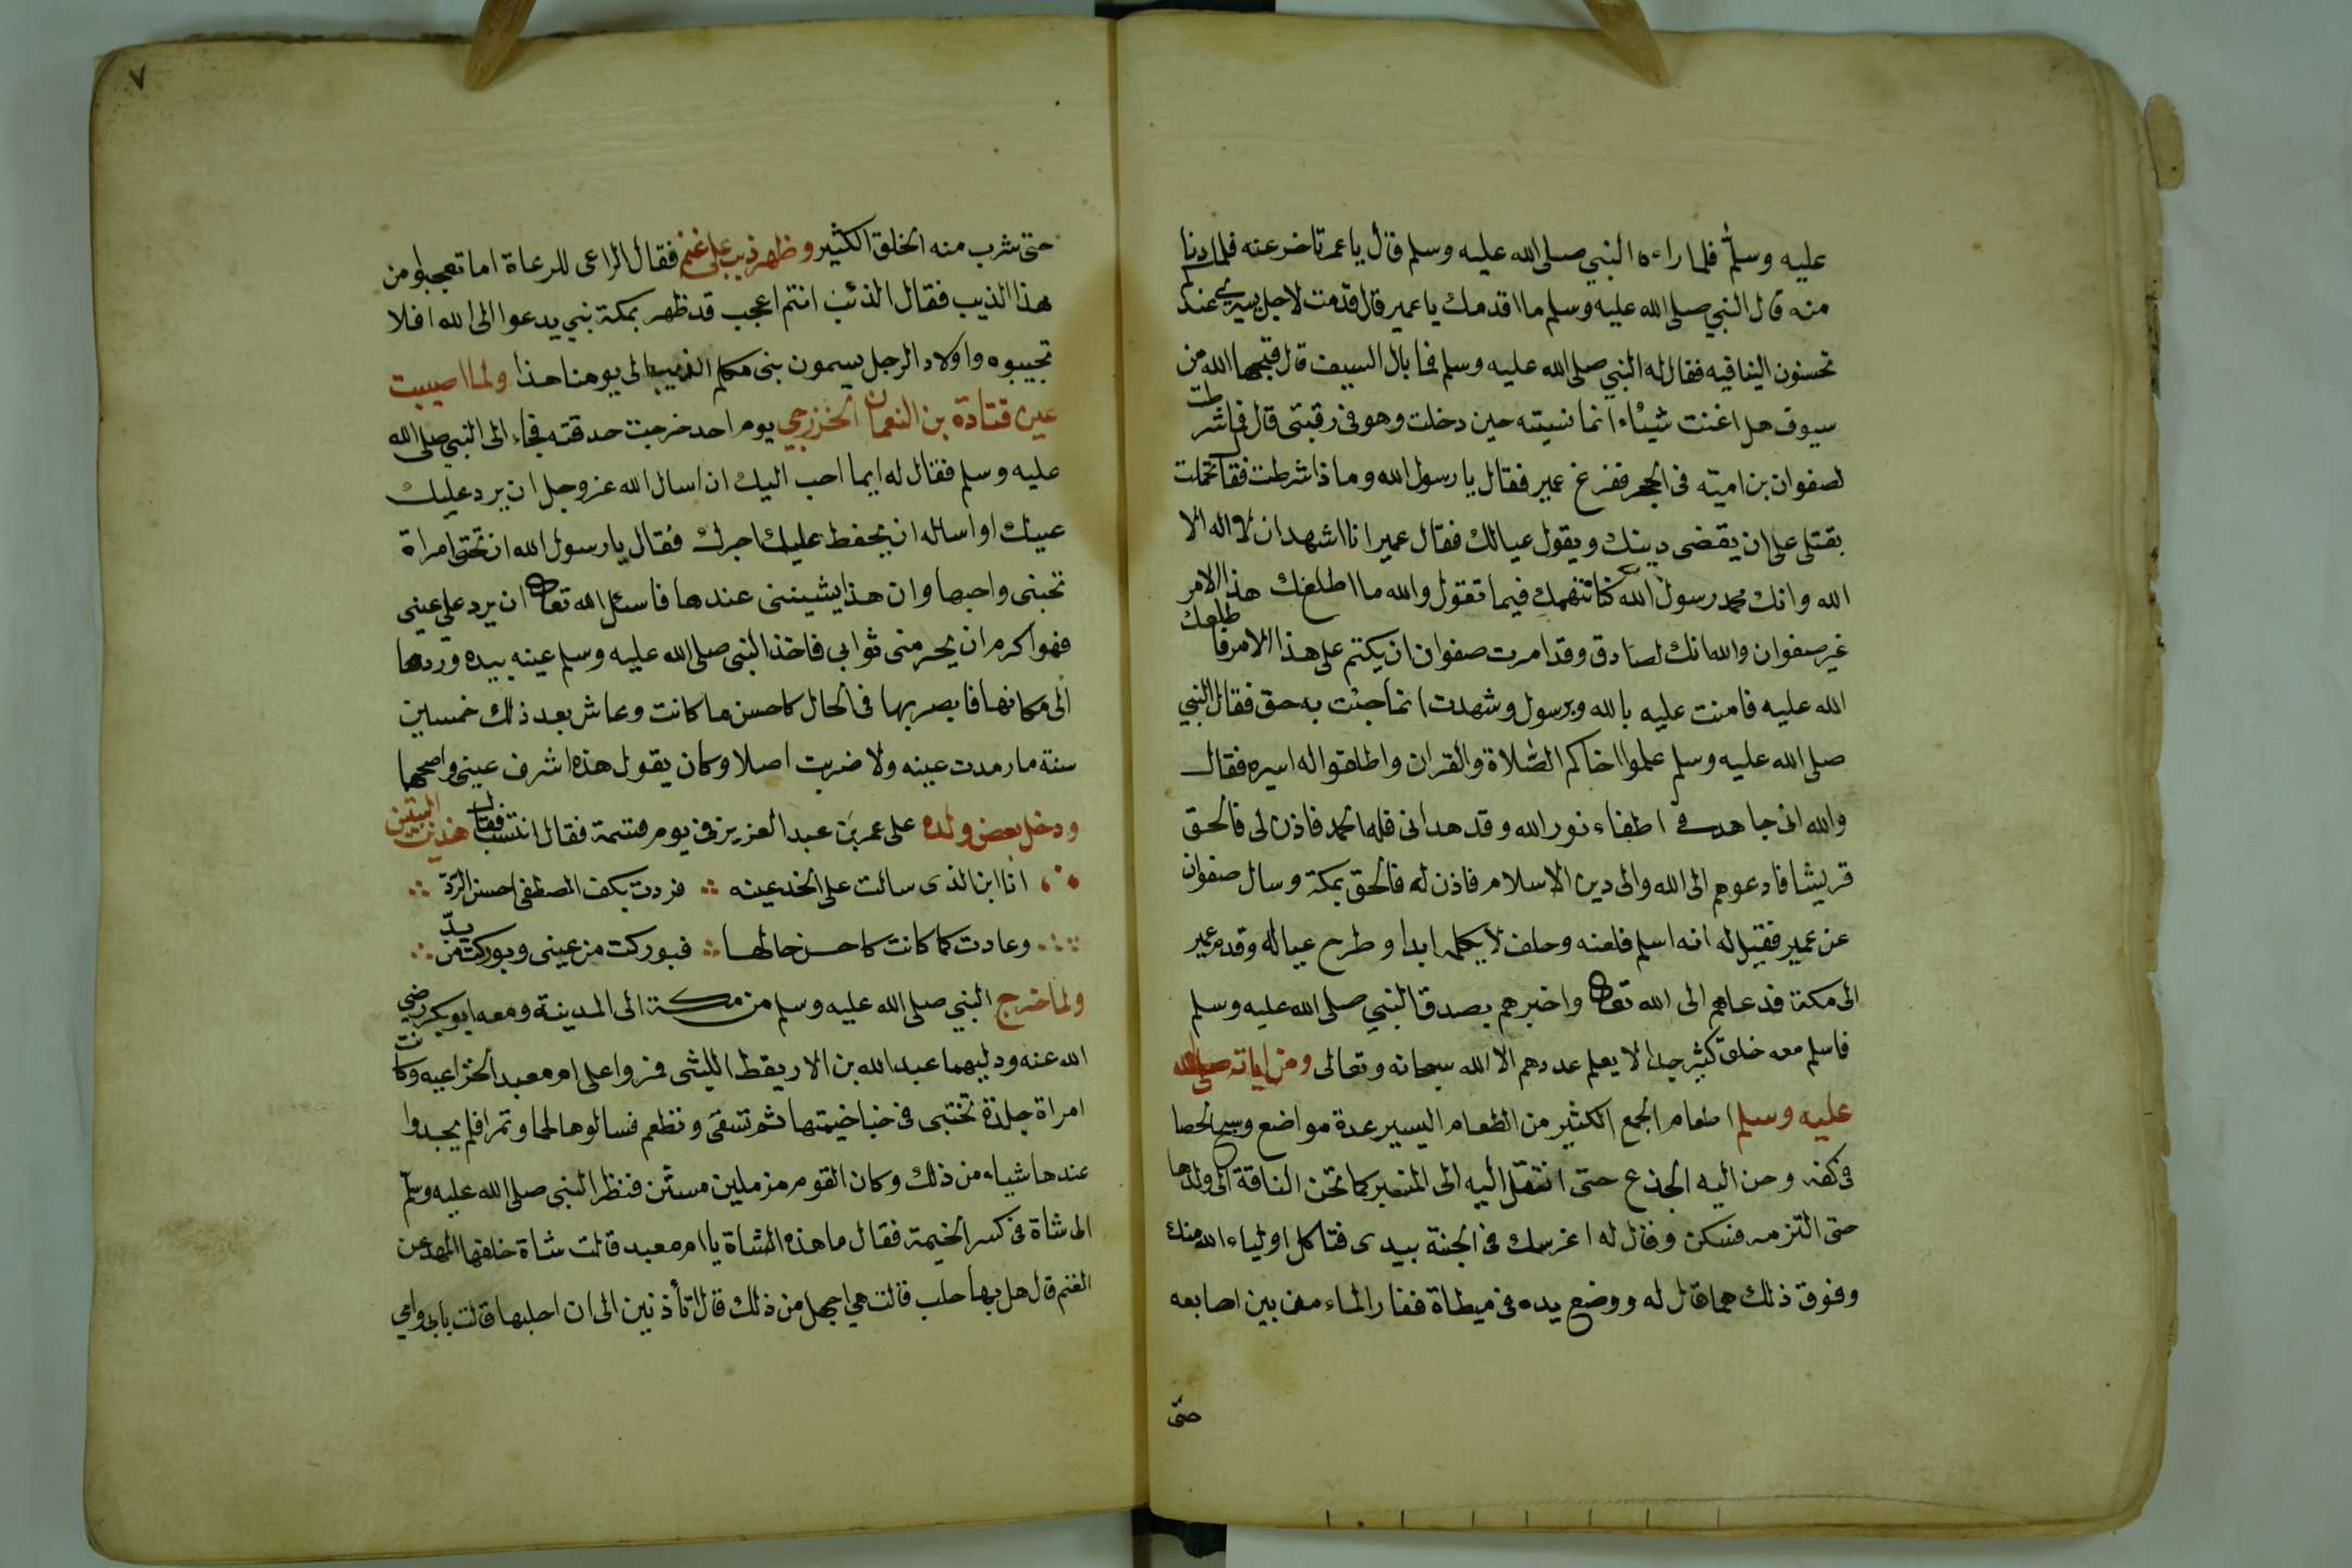 عليه وسلم فلما راءه النبي صلى الله عليه وسلم قال يا عمر تاخر عنه فلما دنا
منه قال النبي صلى الله عليه وسلم ما اقدمك يا عمير قال قدمت لاجل اسيري عندكم
تحسنون الينا فيه فقال له النبي صلى الله عليه وسلم فما بال السيف قال قبحها الله من
سيوف هل اغنت شيئاء انما نسيته حين دخلت وهو في رقبتي قال فما شرطت
لصفوان بن امية في الحجر ففزع عمير فقال يا رسول الله وماذا شرطت فقال تحملت
بقتلي على ان يقضي دينك ويقول عيالك فقال عمير انا اشهد ان لا اله الا
الله وانك محمد رسول الله كنا نتهمك فيما تقول والله ما اطلعك هذا الامر
غير صفوان والله انك لصادق وقد امرت صفوان ان يكتم على هذا الامر فاطلعك
الله عليه فامنت عليه بالله وبرسول وشهدت انما جئت به حق فقال النبي
صلى الله عليه وسلم علموا اخاكم الصلاة والقران واطلقوا له اسيره فقال
والله اني جاهد في اطفاء نور الله وقد هداني فله الحمد فاذن لي فالحق
قريشا فادعوهم الى الله والى دين الاسلام فاذن له فالحق بمكة وسال صفوان
عن عمير فقيل له انه اسلم فلعنه وحلف لا يكلمه ابدا وطرح عياله وقدم عمير
الى مكة فدعاهم الى الله تعالى واخبرهم بصدق النبي صلى الله عليه وسلم
فاسلم معه خلق كثير جدا لا يعلم عددهم الا الله سبحانه وتعالى ومن اياته صلى الله
عليه وسلم اطعام الجمع الكثير من الطعام اليسير عدة مواضع وسبح الحصا
في كفه وحن اليه الجذع حتى انتقل اليه الى المنبر كما تحن الناقة الى ولدها
حتى التزمه فسكن وقال له اغرسك في الجنة بيدي فتاكل اولياء الله منك
وفوق ذلك مما قال له ووضع يده في ميطاة ففار الماء من بين اصابعه
حتى
٧
حتى شرب منه الخلق الكثير وظهر ذيب على غنم فقال الراعي للرعاة اما تعجبلوا من
هذا الذيب فقال الذئب انتم اعجب قد ظهر بمكة نبي يدعوا الى الله افلا
تجيبوه واولاد الرجل يسمون بني مكلم الذيب الى يومنا هذا ولما اصيبت
عين قتادة بن النعمان الخزرجي يوم احد خرجت حدقته فجاء الى النبي صلى الله
عليه وسلم فقال له ايما احب اليك ان اسال الله عز وجل ان يرد عليك
عينك او اساله ان يحفظ عليك اجرك فقال يا رسول الله ان تحتي امراة
تحبني واحبها وان هذا يشينني عندها فاسئل الله تعالى ان يرد علي عيني
فهو اكرم ان يحرمني ثوابي فاخذ النبي صلى الله عليه وسلم عينه بيده وردها
الى مكانها فابصر بها في الحال كاحسن ما كانت وعاش بعد ذلك خمسين
سنة ما رمدت عينه ولا ضربت اصلا وكان يقول هذه اشرف عيني واصحها
ودخل بعض ولده على عمر بن عبد العزيز في يوم فقال انتسب فقال هذين البيتين
انا ابن الذي سالت على الخد عينه فردت بكف المصطفى احسن الرد
وعادت كما كانت كاحسن حالها فبوركت من عيني وبوركت من يد
ولما خرج النبي صلى الله عليه وسلم من مكة الى المدينة ومعه ابو بكر رضي
الله عنه ودليهما عبد الله بن الاريقط الليثي فروا على ام معبد الخزاعيه وكانت
امراة جلدة تختبى في خبا خيمتها ثم تسقى وتطعم فسالوها لحما وتمرا فلم يجدوا
عندها شياء من ذلك وكان القوم مزملين مسنتن فنظر النبي صلى الله عليه وسلم
الى شاة في كسر الخيمة فقال ما هذه الشاة يا ام معبد قالت شاة خلفها الجهد عن
الغنم قال هل بها حلب قالت هي اجهل من ذلك قال اتأذنين الى ان احلبها قالت بابي وامي